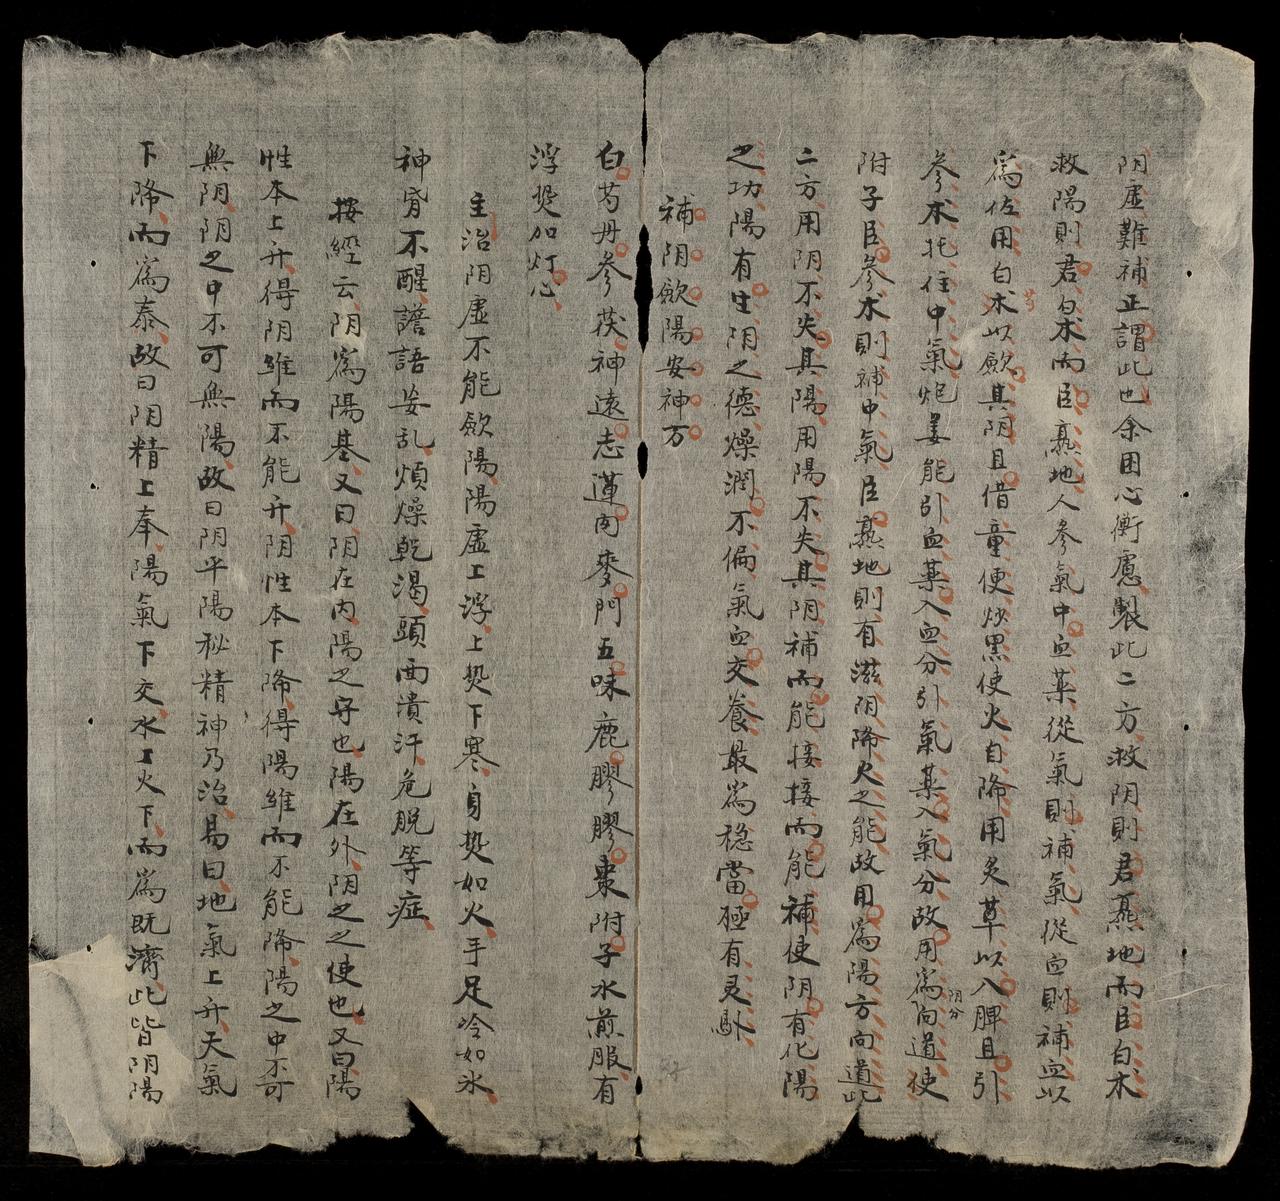 阴虚難補正謂此也余困心衡慮製此二方救阴則君熹地而臣白术
救陽則君白术而臣熹地人参氣中血葯從氣則補氣從血則補血以
爲佐用白术以歛其阴且借童便炒黑使火自降用炙草以入脾且引
芍
参术托住中氣炮姜能引血葯入血分引氣葯入氣分故用爲向道使
阴分
附子臣参术則補中氣臣熹地則有滋阴降火之能故用爲陽方向道此
二方用阴不失其陽用陽不失其阴補而能接接而能補使阴有化陽
之功陽有生阴之德燥潤不偏氣血交養最爲穏當極有灵馱
補阴歛陽安神方
白芍丹参茯神遠志蓮肉麥門五味鹿膠膠棗附子水煎服有
浮熱加灯心
主治阴虚不能歛陽陽虚上浮上熱下寒身熱如火手足冷如氷
神昏不醒譫語妄乱煩燥乾渴頭面潰汗危脱等症
按經云阴爲陽基又曰阴在内陽之守也陽在外阴之之使也又曰陽
性本上升得阴維而不能升阴性本下降得陽維而不能降陽之中不可
無阴阴之中不可無陽故曰阴平陽秘精神乃治易曰地氣上升天氣
下降而爲泰故曰阴精上奉陽氣下交水上火下而爲既濟此皆阴陽